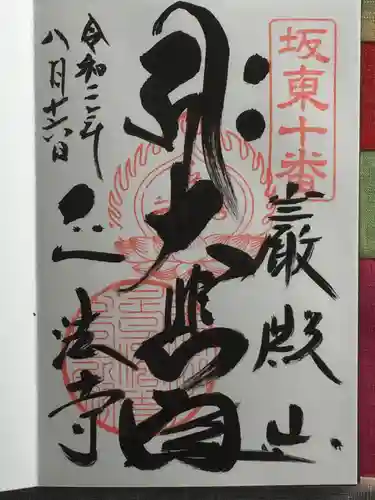 坂東十番
巌殿山
大悲殿
正法寺
令和二年
八月十六日